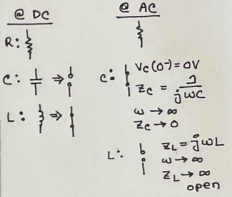 @ DC
@ AC
R:
C: ⇒
C: Vc(0⁻) = 0V
Zc = 1/jωC
ω → ∞
Zc → 0
L: ⇒
L: ZL = jωL
ω → ∞
ZL → ∞
open